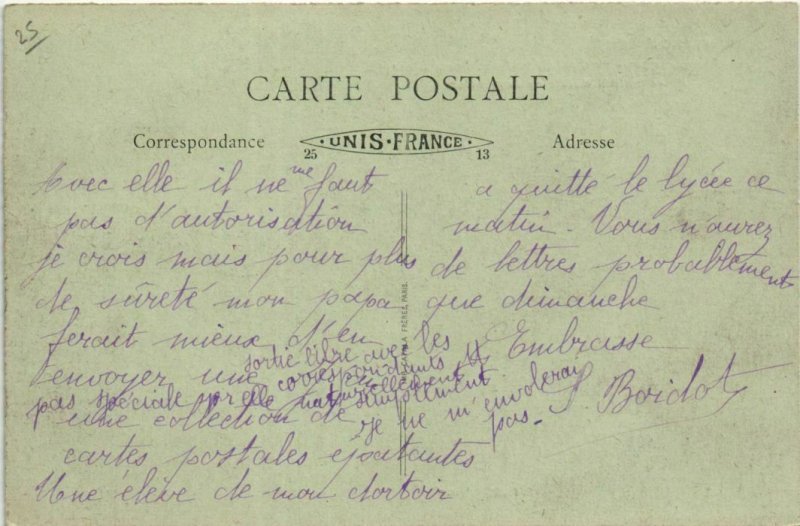 25
CARTE POSTALE
Correspondance
UNIS·FRANCE·
25 13
Adresse
Avec elle il ne me faut
pas d'autorisation
je crois mais pour plus
de sûreté mon papa
ferait mieux d'en
envoyer une
sortie libre avec les
correspondants
pas spéciale pr elle naturellement
simplement
je ne m'envolerai
pas.
une collection de
cartes postales
Une élève de mon dortoir
a quitté le lycée ce
matin. Vous n'aurez
de lettres probablement
que dimanche
Embrasse
S. Boidot
FRÈRES, PARIS